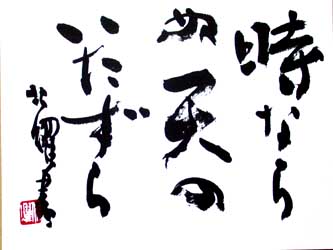 時なら
ぬ天の
いたずら